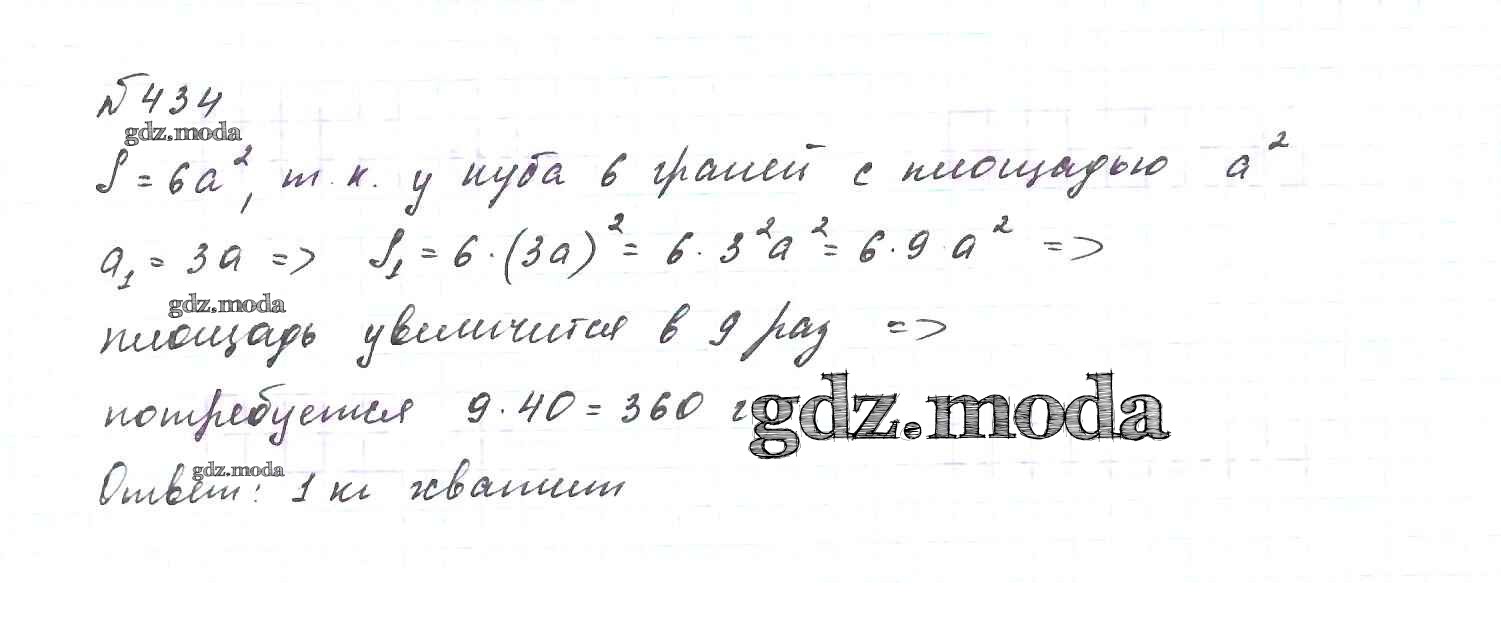 №434
gdz.moda
S = 6a², т.к. у куба 6 граней с площадью a²
a₁ = 3a => S₁ = 6·(3a)² = 6·3²a² = 6·9·a² =>
gdz.moda
площадь увеличится в 9 раз =>
потребуется 9·40 = 360 г
gdz.moda
gdz.moda
Ответ: 1 кг хватит